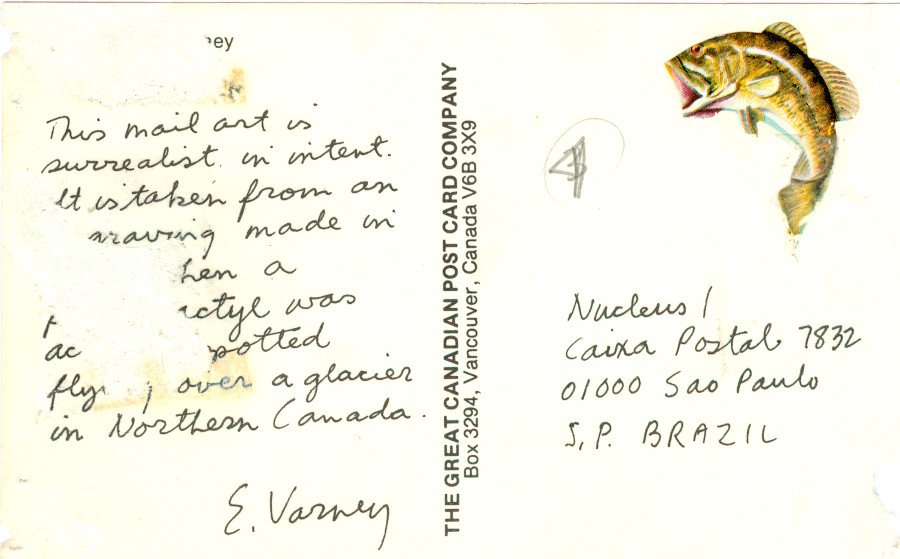 ey
This mail art is
surrealist in intent.
It is taken from an
raving made in
hen a
ctyl was
ac potted
fly over a glacier
in Northern Canada.
E. Varney
THE GREAT CANADIAN POST CARD COMPANY
Box 3294, Vancouver, Canada V6B 3X9
Nucleus 1
Caixa Postal 7832
01000 Sao Paulo
S.P. BRAZIL